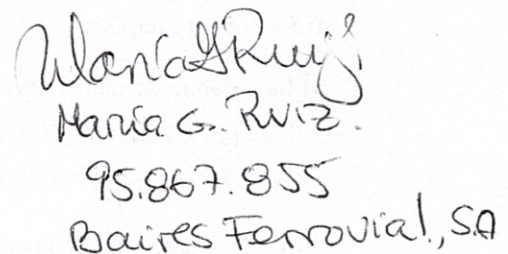 María G Ruiz
María G. Ruiz.
95.867.855
Baires Ferrovial., SA